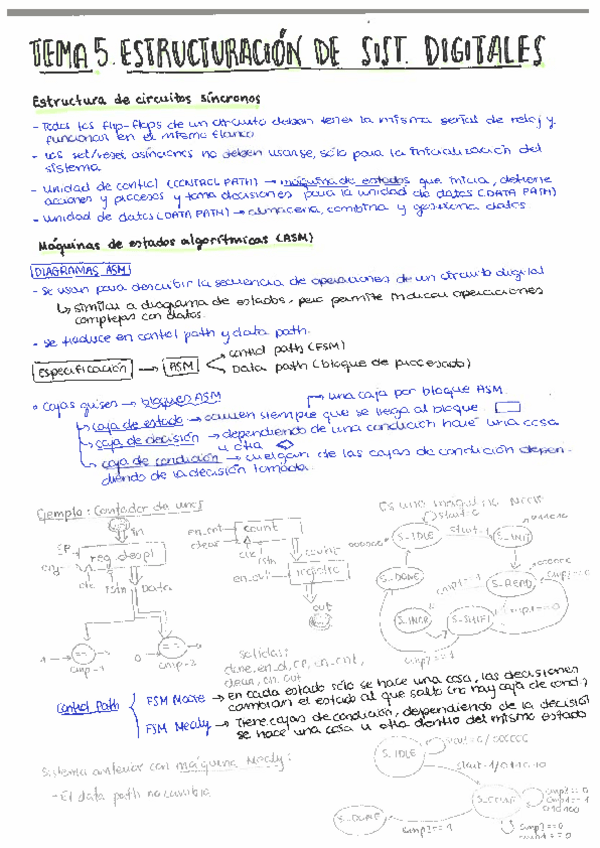 TEMA 5. ESTRUCTURACIÓN DE SIST. DIGITALES
Estructura de circuitos síncronos
- Todos los flip-flops de un circuito deben tener la misma señal de reloj y
funcionar en el mismo flanco
- Los set/reset asíncronos no deben usarse, sólo para la inicialización del
sistema
- Unidad de control (CONTROL PATH) → máquina de estados que inicia, detiene
acciones y procesos y toma decisiones para la unidad de datos (DATA PATH)
- Unidad de datos (DATA PATH) → almacena, combina y gestiona datos
Máquinas de estados algorítmicas (ASM)
DIAGRAMAS ASM
- Se usan para describir la secuencia de operaciones de un circuito digital
↳ similar a diagrama de estados, pero permite indicar operaciones
complejas con datos.
- Se traduce en control path y data path.
Especificación → ASM
control path (FSM)
Data path (bloque de procesado)
Cajas grises → bloques ASM
una caja por bloque ASM.
↳ caja de estado → ocurren siempre que se llega al bloque.
↳ caja de decisión → dependiendo de una condición hace una cosa
u otra
↳ caja de condición → cuelgan de las cajas de condición depen-
diendo de la decisión tomada.
Ejemplo: Contador de unos
in
en_cnt → count
clear
start=0
S_IDLE
start=1
S_INIT
CP
reg. despl
clk
rstn
Data
clk
rstn
count
registro
en_out
out
S_DONE
S_READ
S_INCR
S_SHIFT
cmp2==0
cmp2==1
1 → == cmp-1
0 → == cmp-2
salidas:
clear, en_out
Control Path
FSM Moore → en cada estado sólo se hace una cosa, las decisiones
cambian el estado al que salto (no hay caja de cond.)
FSM Mealy → Tiene cajas de condición, dependiendo de la decisión
se hace una cosa u otra dentro del mismo estado
Sistema anterior con máquina Mealy:
- El data path no cambia
S_IDLE
S_DONE
cmp2==1
cmp2==0